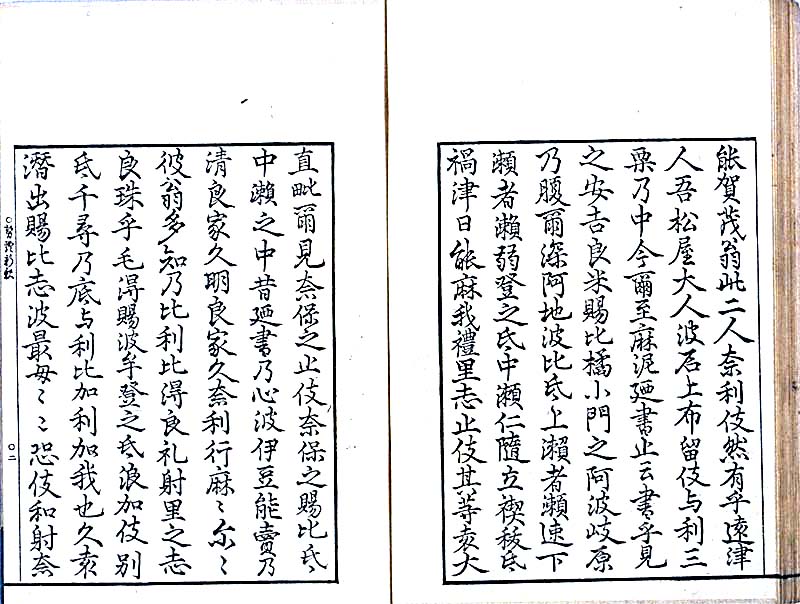 能賀茂翁此二人奈利伎然有乎遠津
人吾松屋大人波石上布留伎与利三
栗乃中今爾至麻泥廼書止云書乎見
之安吉良米賜比橘小門之阿波岐原
乃腹爾深阿地波比氐上瀬者瀬速下
瀬者瀬弱登之氐中瀬仁隨立禊秡氐
禍津日能麻我禮里志止伎其等袁大
直毗爾見奈保之止伎奈保之賜比氐
中瀬之中昔廼書乃心波伊豆能賣乃
清良家久明良家久奈利行麻〻尓〻
彼翁多知乃比利比得良礼射里之志
良珠乎毛淂賜波牟登之氐浪加伎別
氐千尋乃底与利比加利加我也久袁
潛出賜比志波最毎〻〻恐伎和射奈
〇二